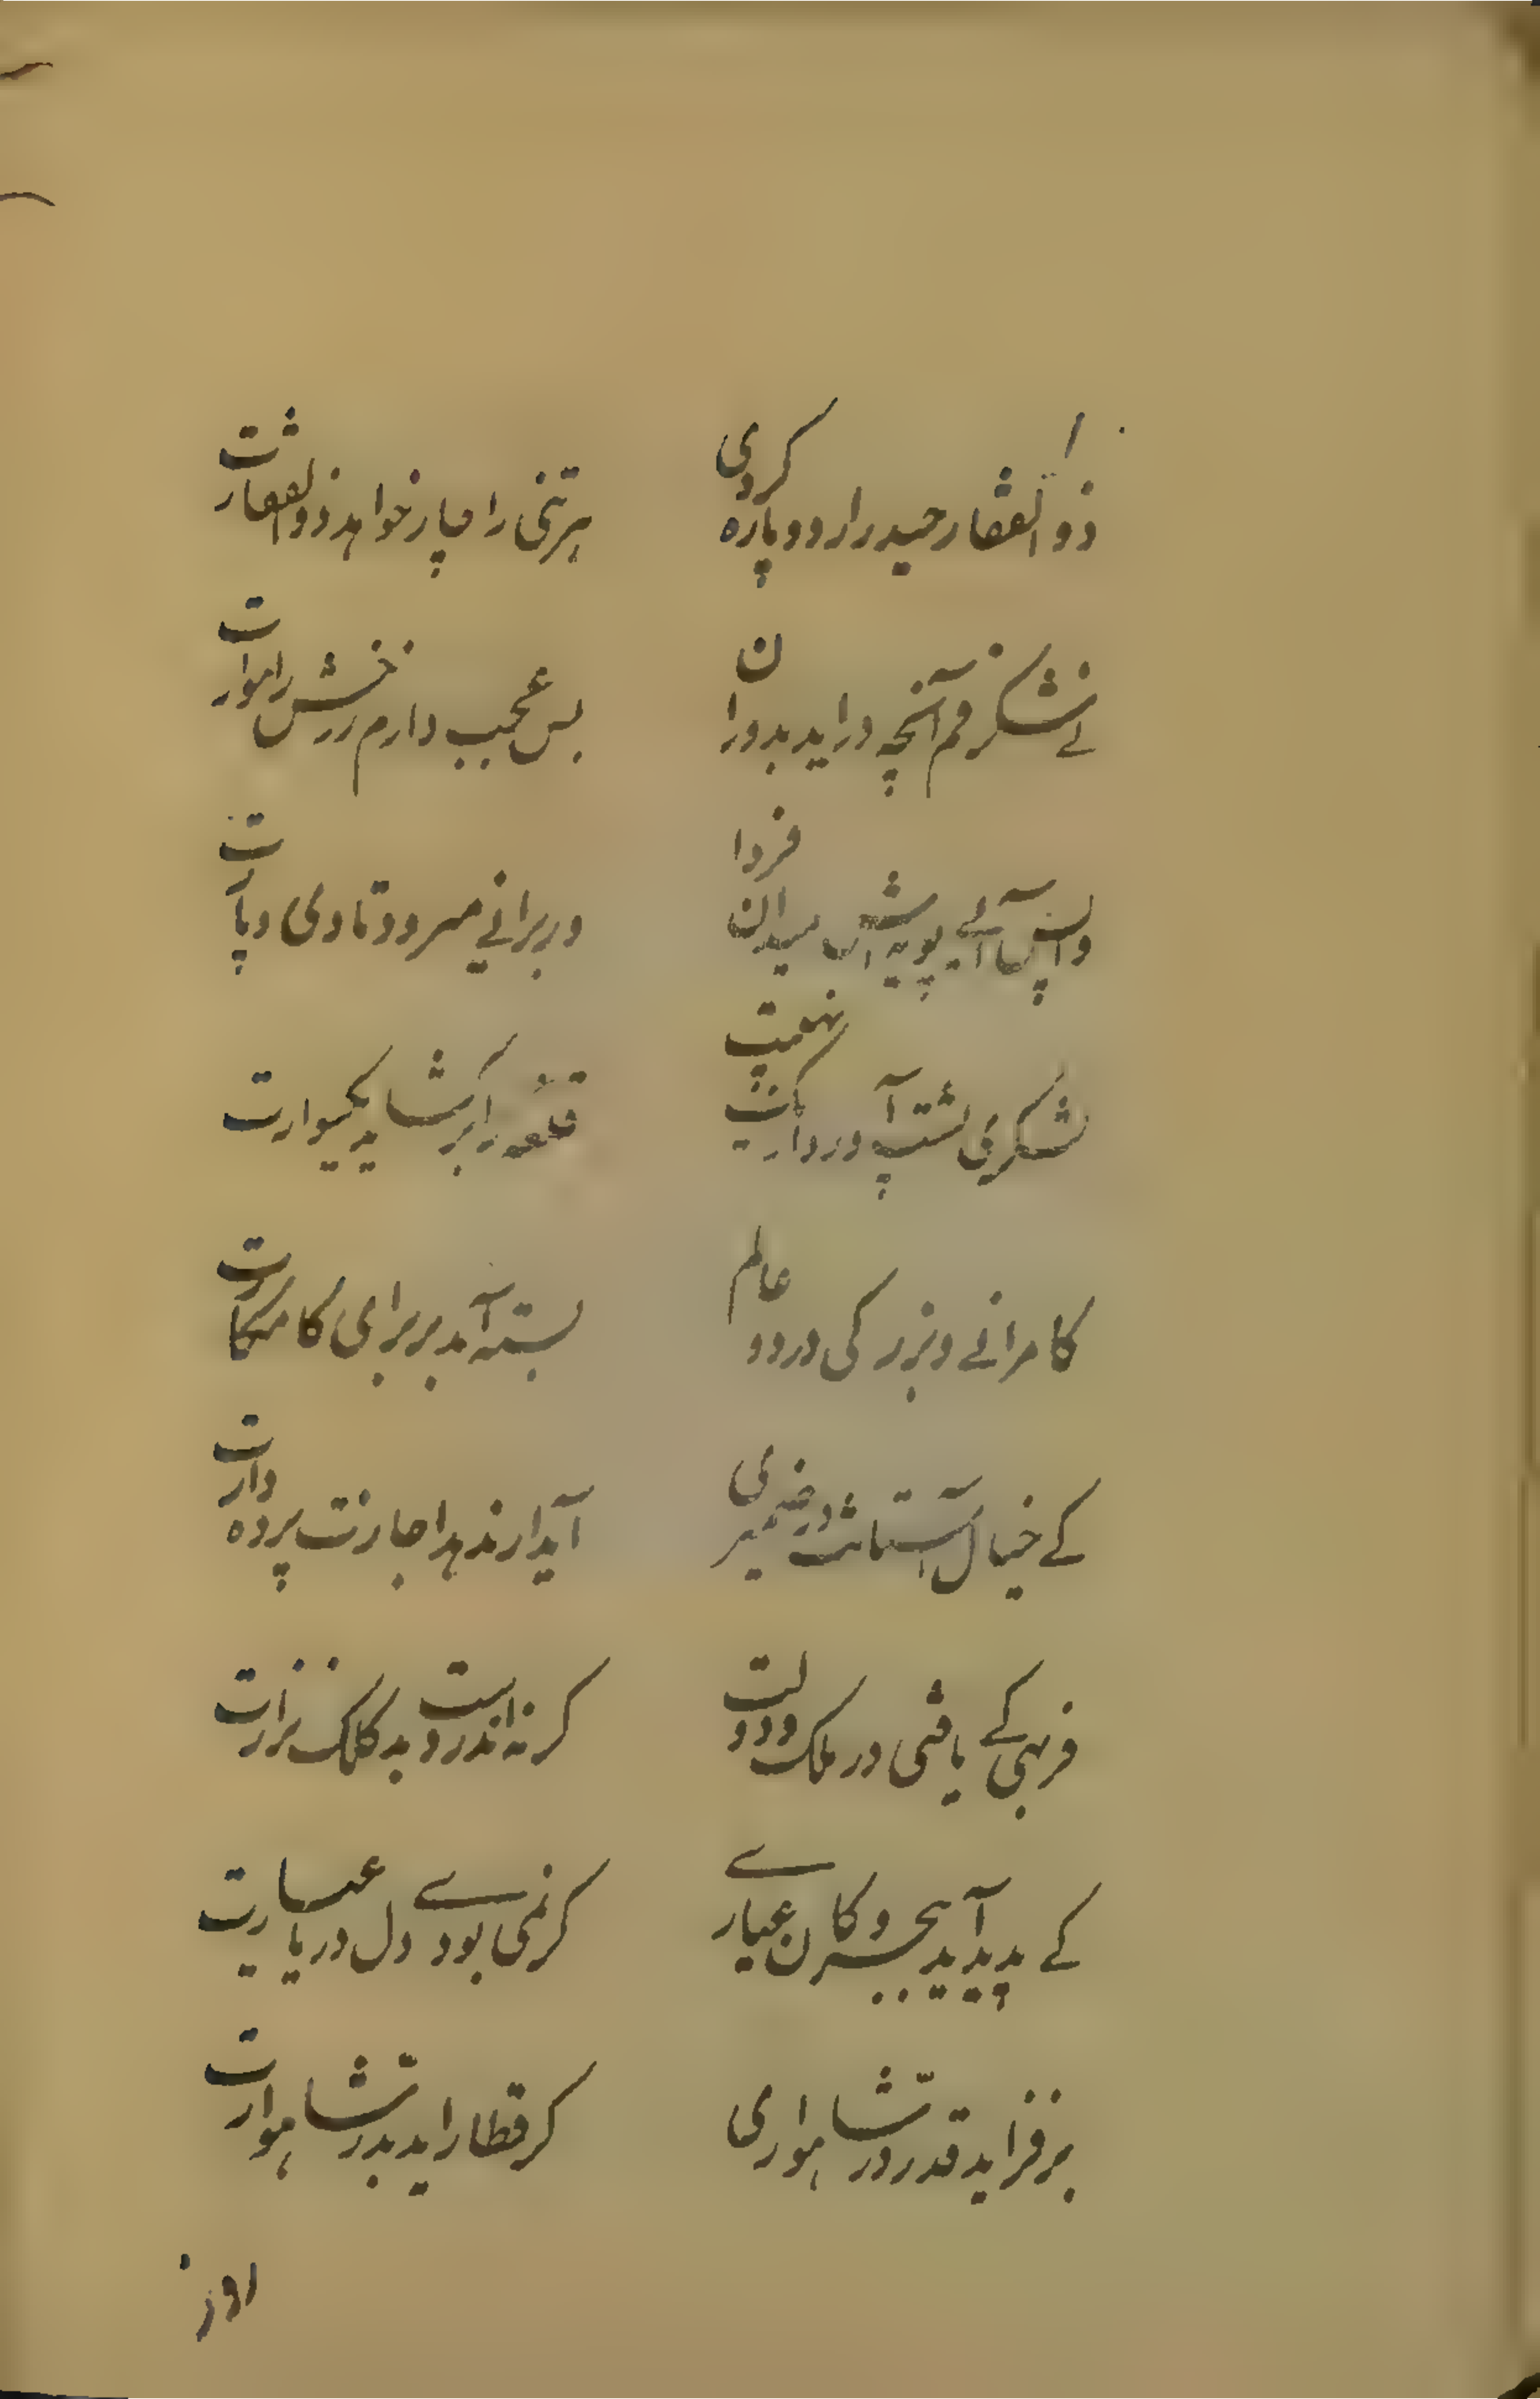 ذوالفقار حیدر ار دو پاره کردی
هر تنی را چار خواهد ذوالفقارت
نے شکرفم آنچه دراید بدوران
بس عجب دارم زرخش راموارت
واپس آئے پویه اش میدان فردا
وربرانے میرود تا دی وپارت
لشکری پشت آورد ارکت نهیب
قلعه را برکشاید یکسوارت
کامرانے وبزرکی در دو عالم
بسته آمد بر برای کامکارت
کے خیال آستانت در ضمیری
آید ار ندهد اجازت پرده دارت
فربهی کے یافتی در ملک ودولت
کر نه اندر دست بد کلک نزارت
کے پدید آید بحر وکان عیارے
کر نمی بودے دل دریا عیارت
برفزاید قدر در شاهواری
کر قطار اید بدر شاهوارت
اوز